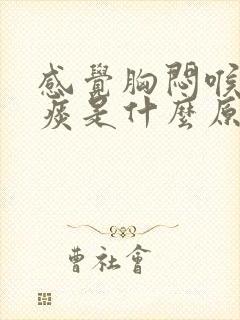 感覺胸悶喉
痰是什麼原
曹社會